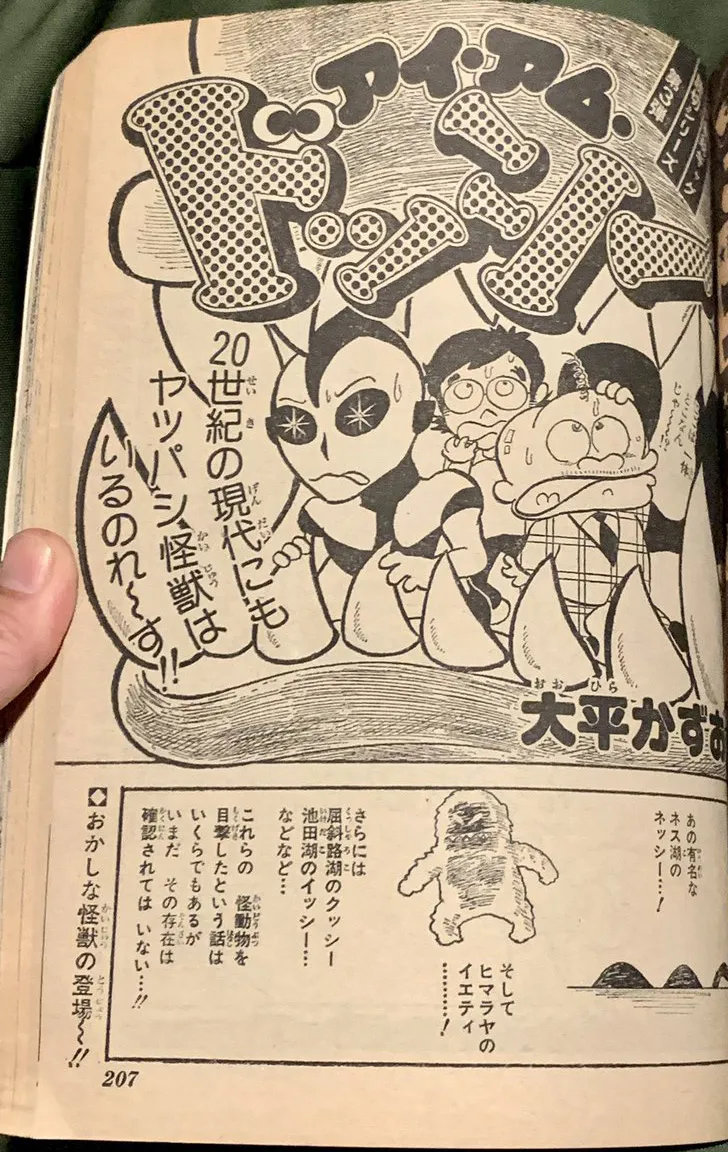 シリーズ
第3弾
アイ・アム・
ドッシー
20世紀の現代にも
ヤッパシ怪獣は
いるのれ〜す!!
おおひら
大平かずお
あの有名な
ネス湖の
ネッシー…!
そして
ヒマラヤの
イエティ
…………!
さらには
屈斜路湖のクッシー
池田湖のイッシー…
などなど…
これらの 怪動物を
目撃したという話は
いくらでもあるが
いまだ その存在は
確認されては いない…!!
◆おかしな怪獣の登場〜!!
207